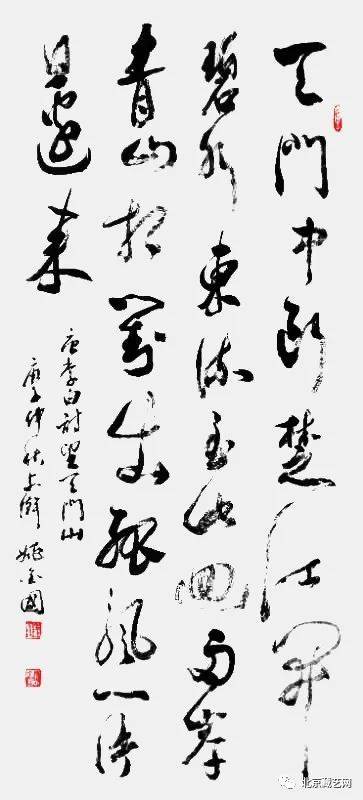 天門中断楚江開
碧水東流至此回兩岸
青山相對出孤帆一片
日邊來
唐李白詩望天門山
庚子仲秋上澣 姚金國
北京藏艺网